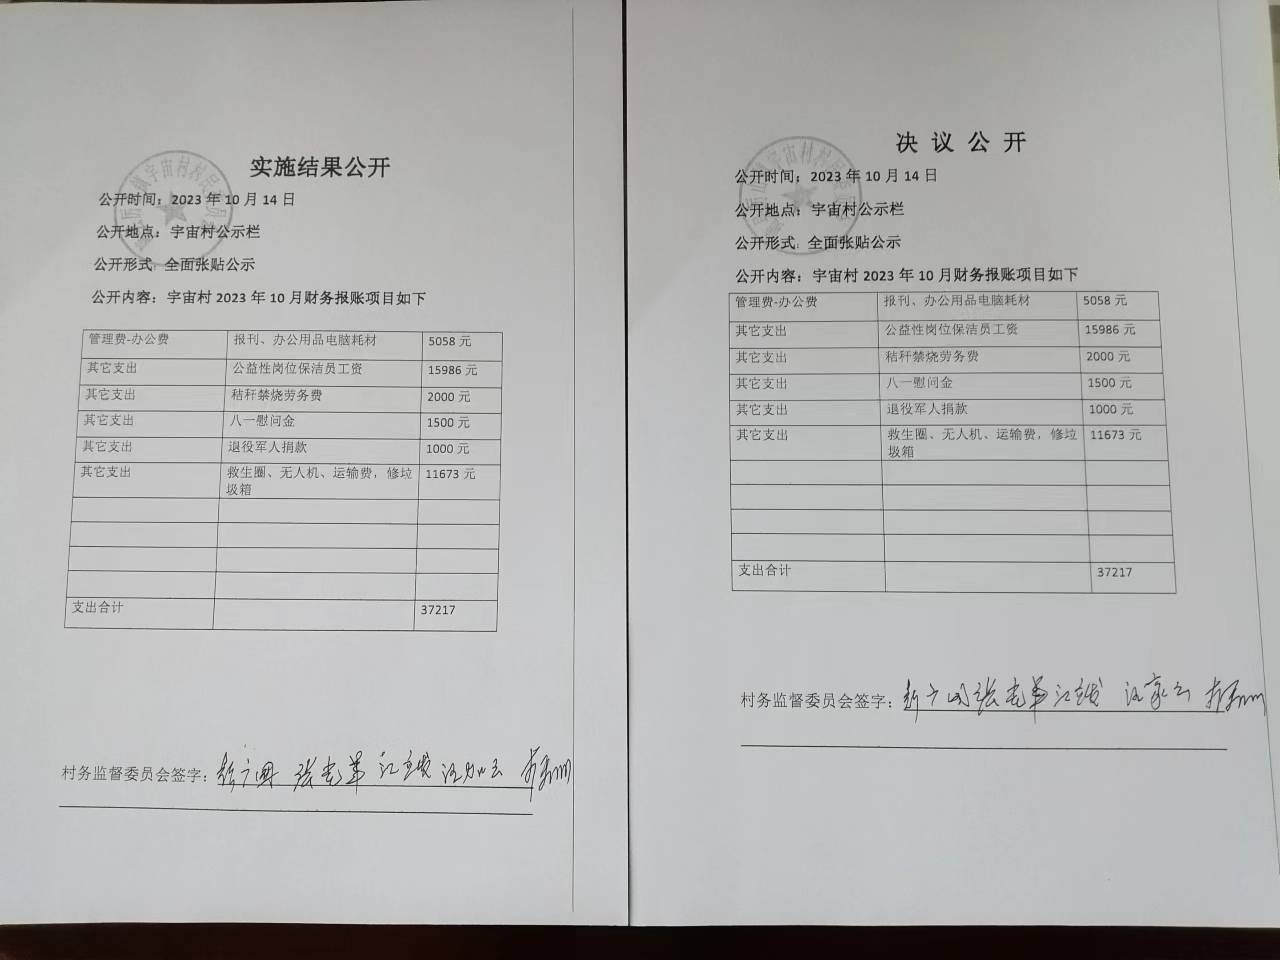 实施结果公开
公开时间：2023 年 10 月 14 日
公开地点：宇宙村公示栏
公开形式：全面张贴公示
公开内容：宇宙村 2023 年 10 月财务报账项目如下
管理费-办公费 报刊、办公用品电脑耗材 5058 元
其它支出 公益性岗位保洁员工资 15986 元
其它支出 秸秆禁烧劳务费 2000 元
其它支出 八一慰问金 1500 元
其它支出 退役军人捐款 1000 元
其它支出 救生圈、无人机、运输费，修垃 11673 元
圾箱
支出合计 37217
村务监督委员会签字：
决 议 公 开
公开时间：2023 年 10 月 14 日
公开地点：宇宙村公示栏
公开形式：全面张贴公示
公开内容：宇宙村 2023 年 10 月财务报账项目如下
管理费-办公费 报刊、办公用品电脑耗材 5058 元
其它支出 公益性岗位保洁员工资 15986 元
其它支出 秸秆禁烧劳务费 2000 元
其它支出 八一慰问金 1500 元
其它支出 退役军人捐款 1000 元
其它支出 救生圈、无人机、运输费，修垃 11673 元
圾箱
支出合计 37217
村务监督委员会签字：